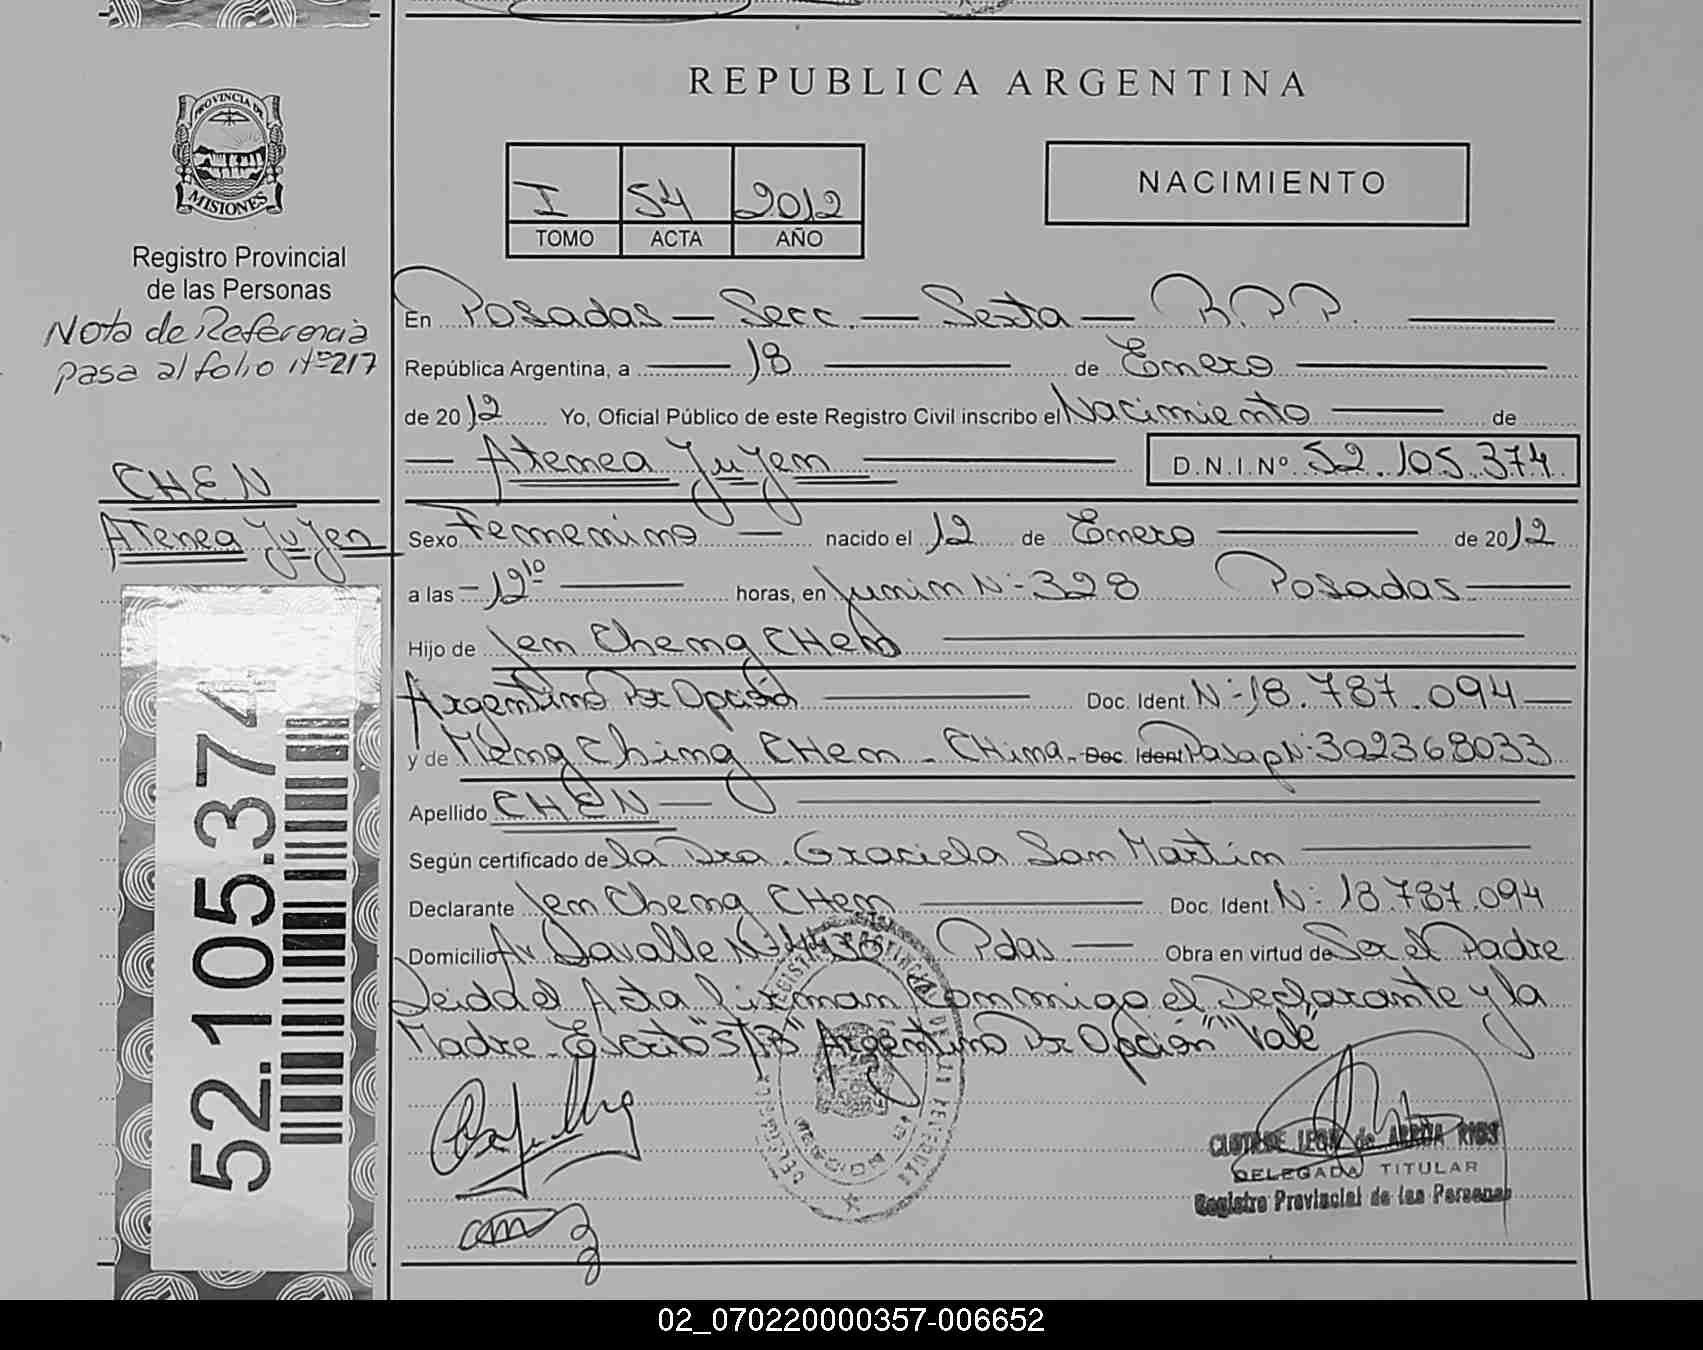 REPUBLICA ARGENTINA
PROVINCIA DE
MISIONES
Registro Provincial
de las Personas
Nota de Referencia
pasa al folio Nº 217
I 54 2012
TOMO ACTA AÑO
NACIMIENTO
En Posadas - Secc. - Sexta - R.P.P.
República Argentina, a 18 de Enero
de 2012 Yo, Oficial Público de este Registro Civil inscribo el Nacimiento de
Atenea Ju Jen D.N.I. Nº 52.105.374
CHEN
Atenea Ju Jen
Sexo Femenino nacido el 12 de Enero de 2012
a las 12 10 horas, en Junin Nº 328 Posadas
Hijo de Jen Cheng CHEN
Argentino Por Opción Doc. Ident. Nº 18.787.094
y de Meng Ching CHEN - CHina - Doc. Ident Pasap Nº 302368033
Apellido CHEN
Según certificado de la Dra. Graciela San Martin
Declarante Jen Cheng CHEN Doc. Ident. Nº 18.787.094
Domicilio Av Lavalle Nº Pdas Obra en virtud de Ser el Padre
Leida el Acta firman conmigo el Declarante y la
Madre. E/scrito "S/B" Argentino Por Opción" "Vale"
52.105.374
DELEGADA TITULAR
Registro Provincial de las Personas
02_070220000357-006652